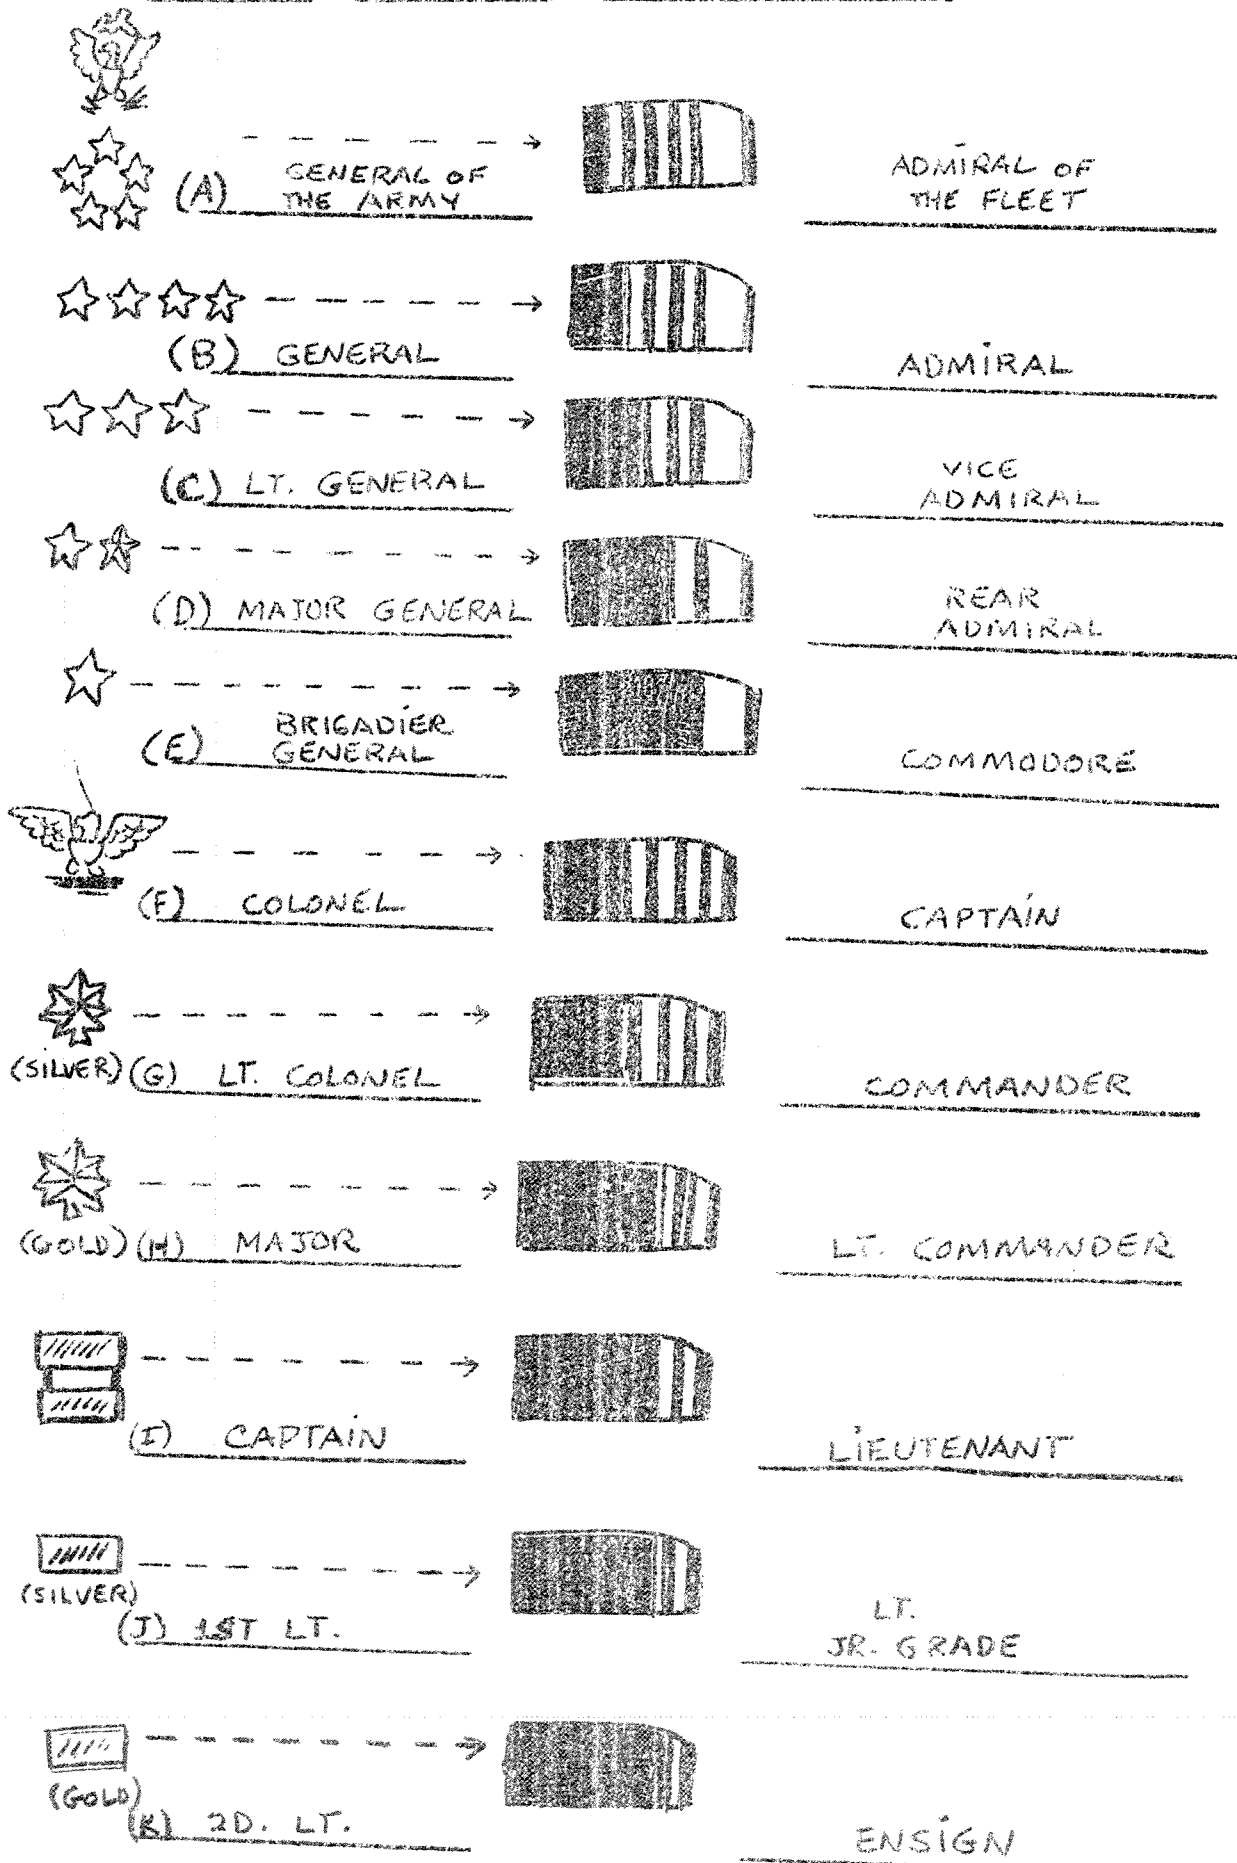 GENERAL OF
(A) THE ARMY
ADMIRAL OF
THE FLEET
(B) GENERAL
ADMIRAL
(C) LT. GENERAL
VICE
ADMIRAL
(D) MAJOR GENERAL
REAR
ADMIRAL
BRIGADIER
(E) GENERAL
COMMODORE
(F) COLONEL
CAPTAIN
(SILVER) (G) LT. COLONEL
COMMANDER
(GOLD) (H) MAJOR
LT. COMMANDER
(I) CAPTAIN
LIEUTENANT
(SILVER)
(J) 1ST LT.
LT.
JR. GRADE
(GOLD)
(K) 2D. LT.
ENSIGN